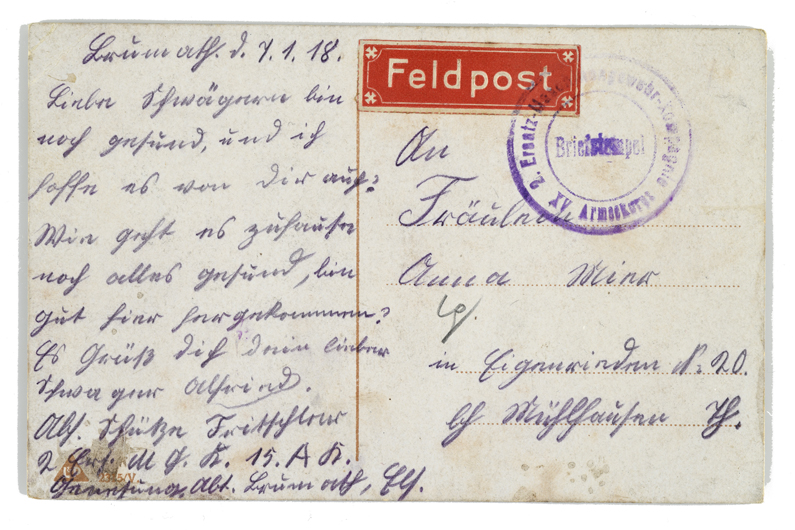 Brumath. d. 7.1.18.
Liebe Schwägern bin
noch gesund, und ich
hoffe es von Dir auch?
Wie geht es zuhause
noch alles gesund, bin
gut hier hergekommen?
Es Grüß dich dein lieber
Schwager Alfried.
Abs. Schütze Fritschler
2 Ers. M. G. K. 15. A K.
Genesung. Abt. Brumath, Els.
Feldpost
2. Ersatz-Maschinengewehr-Kompagnie
XV Armeekorps
Briefstempel
An
Fräulein
Anna Mier
in Eigenrieden N. 20.
b/ Mühlhausen Th.